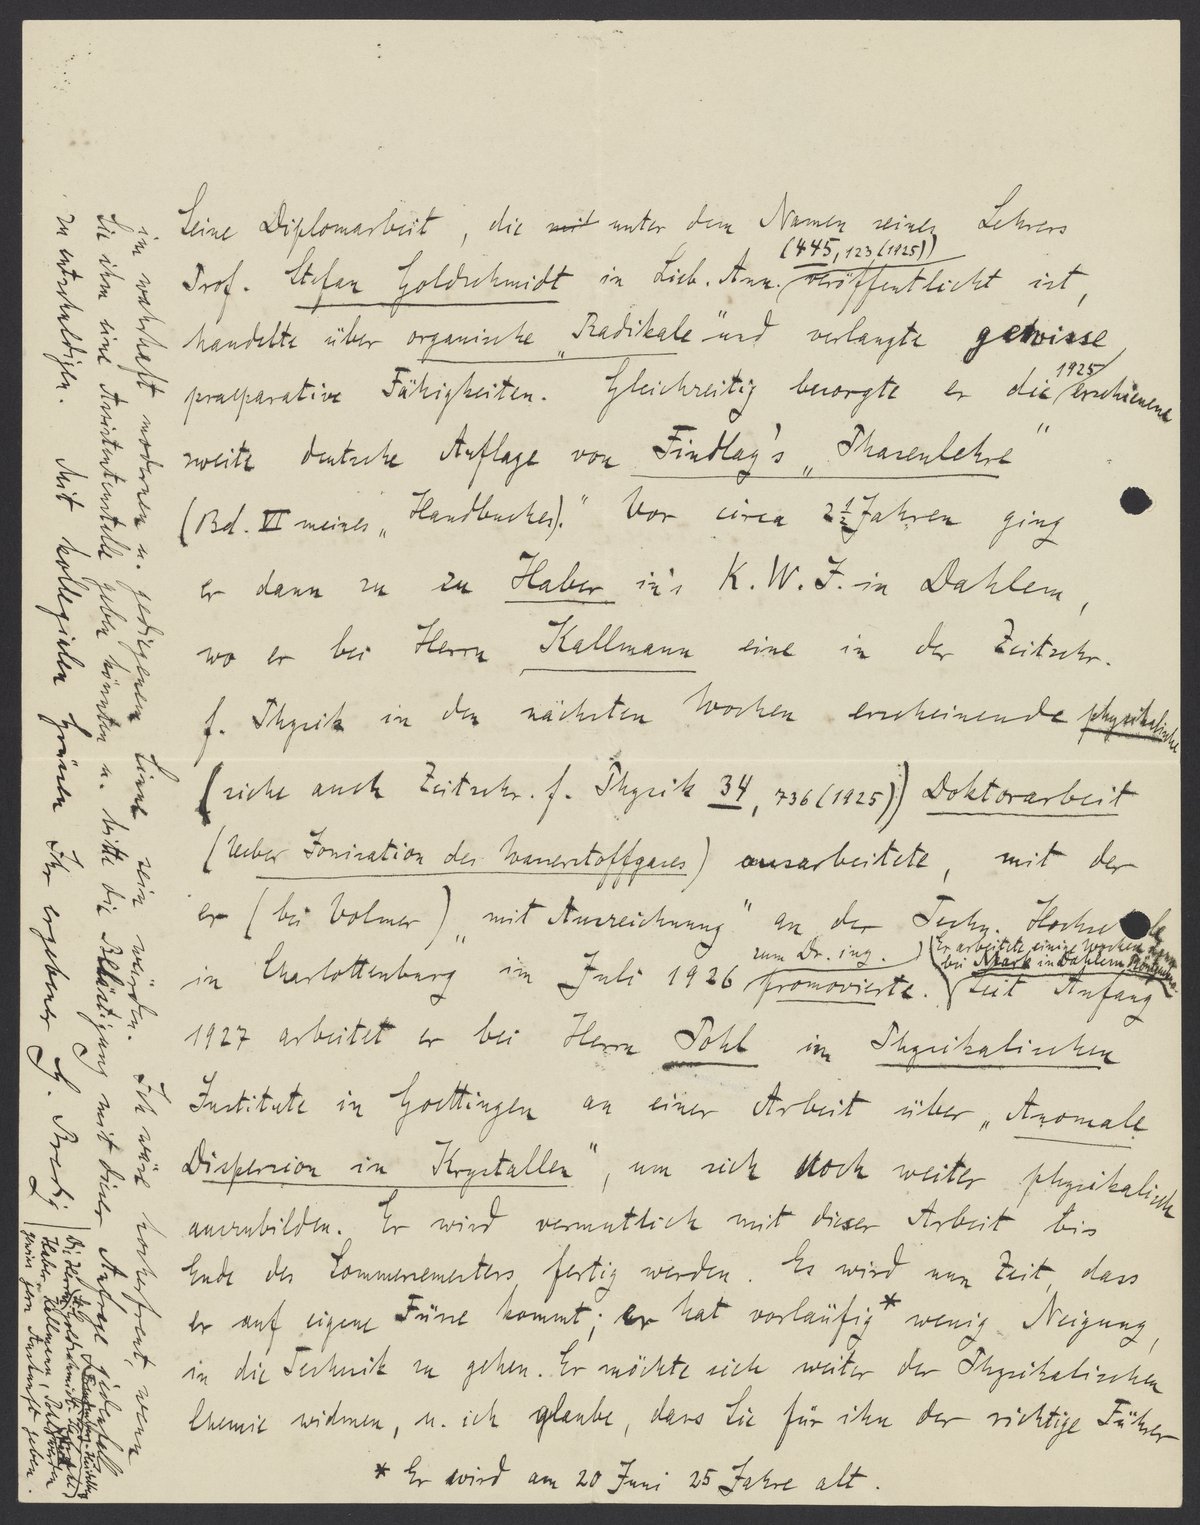 Seine Diplomarbeit, die mit unter dem Namen seines Lehrers
Prof. Stefan Goldschmidt in Lieb. Ann. (445, 123 (1925)) veröffentlicht ist,
handelte über organische „Radikale" und verlangte gewisse
praeparative Fähigkeiten. Gleichzeitig besorgte er die 1925 erschienene
zweite deutsche Auflage von Findlay's „Phasenlehre"
(Bd. VI meines „Handbuches)." Vor circa 2½ Jahren ging
er dann zu zu Haber in's K.W.I. in Dahlem,
wo er bei Herrn Kallmann eine in der Zeitschr.
f. Physik in den nächsten Wochen erscheinende physikalische
(siehe auch Zeitschr. f. Physik 34, 736 (1925)) Doktorarbeit
(Ueber Ionisation des Wasserstoffgases) ausarbeitete, mit der
er (bei Volmer) „mit Auszeichnung" an der Techn. Hochschule
in Charlottenburg im Juli 1926 zum Dr. ing. promovierte. (Er arbeitete einige Wochen dann
bei Mark in Dahlem) Seit Anfang
1927 arbeitet er bei Herrn Pohl im Physikalischen
Institute in Goettingen an einer Arbeit über „Anomale
Dispersion in Krystallen", um sich noch weiter physikalisch
auszubilden. Er wird vermutlich mit dieser Arbeit bis
Ende des Sommersemesters fertig werden. Es wird nun Zeit, dass
er auf eigene Füsse kommt; er hat vorläufig* wenig Neigung,
in die Technik zu gehen. Er möchte sich weiter der Physikalischen
Chemie widmen, u. ich glaube, dass Sie für ihn der richtige Führer
* Er wird am 20 Juni 25 Jahre alt.
im wahrhaft modernen u. gediegenen Sinne sein würden. Ich wäre hocherfreut, wenn
Sie ihm eine Assistentenstelle geben könnten u. bitte die Belästigung mit dieser Anfrage jedenfalls
zu entschuldigen. Mit kollegialen Grüssen Ihr ergebener G. Bredig
Die Herren Goldschmidt
Haber, Kallmann, Pohl werden
gewiss gern Auskunft geben.